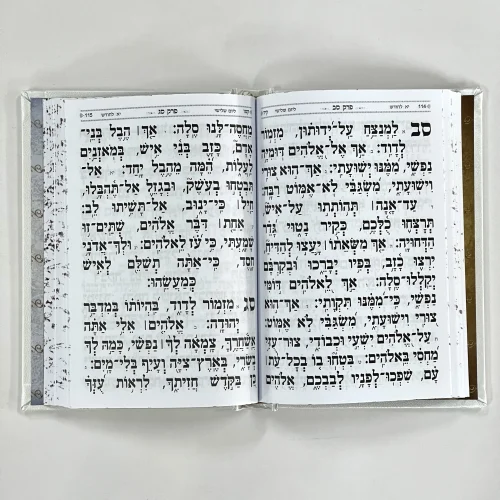 114 יא לחודש פרק סב ליום שלישי
סב לַמְנַצֵּחַ עַל־יְדוּתוּן, מִזְמוֹר
לְדָוִד: אַךְ אֶל־אֱלֹהִים דּוּמִיָּה
נַפְשִׁי, מִמֶּנּוּ יְשׁוּעָתִי: אַךְ־הוּא צוּרִי
וִישׁוּעָתִי, מִשְׂגַּבִּי לֹא־אֶמּוֹט רַבָּה:
עַד־אָנָה | תְּהוֹתְתוּ עַל־אִישׁ
תְּרָצְּחוּ כֻלְּכֶם, כְּקִיר נָטוּי גָּדֵר
הַדְּחוּיָה: אַךְ מִשְּׂאֵתוֹ | יָעֲצוּ לְהַדִּיחַ
יִרְצוּ כָזָב, בְּפִיו יְבָרֵכוּ וּבְקִרְבָּם
יְקַלְלוּ־סֶלָה: אַךְ לֵאלֹהִים דּוֹמִּי
נַפְשִׁי, כִּי־מִמֶּנּוּ תִּקְוָתִי: אַךְ־הוּא
צוּרִי וִישׁוּעָתִי, מִשְׂגַּבִּי לֹא אֶמּוֹט:
עַל־אֱלֹהִים יִשְׁעִי וּכְבוֹדִי, צוּר־עֻזִּי
מַחְסִי בֵּאלֹהִים: בִּטְחוּ בוֹ בְכָל־עֵת |
עָם, שִׁפְכוּ־לְפָנָיו לְבַבְכֶם, אֱלֹהִים
ליום שלישי פרק סג יא לחודש 115
מַחֲסֶה־לָּנוּ סֶלָה: אַךְ | הֶבֶל בְּנֵי־
אָדָם, כָּזָב בְּנֵי אִישׁ, בְּמֹאזְנַיִם
לַעֲלוֹת, הֵמָּה מֵהֶבֶל יָחַד: אַל־
תִּבְטְחוּ בְעֹשֶׁק, וּבְגָזֵל אַל־תֶּהְבָּלוּ,
חַיִל | כִּי־יָנוּב, אַל־תָּשִׁיתוּ לֵב:
אַחַת | דִּבֶּר אֱלֹהִים, שְׁתַּיִם־זוּ
שָׁמָעְתִּי, כִּי עֹז לֵאלֹהִים: וּלְךָ־אֲדֹנָי
חָסֶד, כִּי־אַתָּה תְשַׁלֵּם לְאִישׁ
כְּמַעֲשֵׂהוּ:
סג מִזְמוֹר לְדָוִד, בִּהְיוֹתוֹ בְּמִדְבַּר
יְהוּדָה: אֱלֹהִים | אֵלִי אַתָּה
אֲשַׁחֲרֶךָּ, צָמְאָה לְךָ | נַפְשִׁי, כָּמַהּ לְךָ
בְשָׂרִי, בְּאֶרֶץ־צִיָּה וְעָיֵף בְּלִי־מָיִם:
כֵּן בַּקֹּדֶשׁ חֲזִיתִךָ, לִרְאוֹת עֻזְּךָ